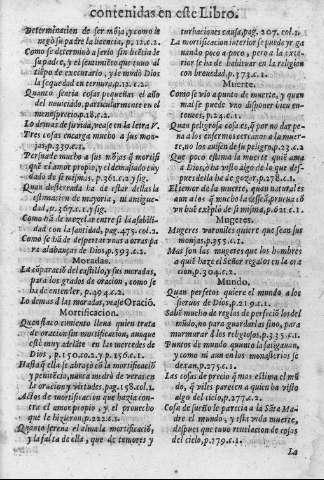 contenidas en este Libro.
Determinacion de ser mõja, y como le
negò su padre la licencia, p. 11.c.2.
Como se determinò a serlo sin dezirlo a
su padre, y el sentimiẽto que tuuo al
tiẽpo de executarlo, y le mudò Dios
la sequedad en ternura, p.12.c.2.
Quanto sentia cosas pequeñas el año
del nouiciado, particularmente en el
menosprecio, p.18.c.2.
Lo demas de su vida, vease en la letra V.
Tres cosas encarga mucho a sus mon-
jas, p.339.c.1.
Persuade mucho a sus mõjas q̃ mortifi
quẽ el amor propio, y el demasiado cuy
dado de si mismas, p.361.c.2. y sig.
Quan desterrada ha de estar dellas la
estimacion de mayoria, ni antigue-
dad, p.367.c.1. y sig.
Como ha de mezclar entre si la afabili-
dad con la santidad, pag.475.col.2.
Como se hã de despertar vnas a otras pa
ra alabanças de Dios, p.593.c.2.
Moradas.
La cõparaciõ del castillo, y sus moradas,
para los grados de oracion, como se
ha de entender, p.494.c.2.
Lo demas d las moradas, vea se Oraciō.
Mortificacion.
Quan flaco cimiento lleua quien trata
de oracion sin mortificacion, aunque
estè muy adelãte en las mercedes de
Dios, p.150.co.2. y p.156.c.1.
Hasta q̃ ella se abraçò cõ la mortificaciõ
y penitẽcia, nunca medrò de veras en
la oracion y virtudes pag.158.col.1.
Actos de mortificacion que hazia con-
tra el amor propio, y el prouecho
que le hizieron, p.222.c.1.
Quanto serena el alma la mortificaciõ,
y la falta de ella, que de temores y
turbaciones causa, pag.207. col.2.
La mortificacion interior se puede yr ga
nando poco a poco, pero a la exte-
rior se ha de habituar en la religion
con breuedad. p.373.c.1.
Muerte.
Como se vio a punto de muerte, y quan
mal se puede vno disponer bien en-
tonces, p.24.c.1.
Quan peligrosa cosa es, q̃ por no dar pe-
na a los enfermos cercanos a la muer-
te, no los auisen de su peligro, p.23.c.2
Que poco estima la muerte quiẽ ama
a Dios, o ha visto algo de lo que des-
pues della ha de gozar, p.278.c.1.
El temor de la muerte, quan natural es
aun a los q̃ mucho la dessean, prueua cõ
vn buẽ exẽplo de si misma, p.621.c.1.
Mugeres.
Mugeres varoniles quiere que sean sus
monjas, p.355.c.1.
Mas son las mugeres que los hombres
a quiẽ haze el Señor regalos en la ora
cion, p.304.c.2.
Mundo.
Quan perseguidos quiere el mundo a los
sieruos de Dios, p.219.c.1.
Sabẽ mucho de reglas de perfeciõ los del
mũdo, no para guardarlas sino, para
murmurar d los religiosos, p.335.c.1.
Puntos de mundo quanto la fatigauan,
y como ni aun en los monasterios se
dexan, p.275.c.1.
Las cosas de precio q̃ mas estima el mũ
do, q̃ viles parecen a quien ha visto
algo del cielo, p.277.c.2.
Cosa de sueño le parecia a la Sãta Ma-
dre el mundo, y esta vida muerte,
despues que tuuo reuelacion de cosas
del cielo, p.179.c.1.
La